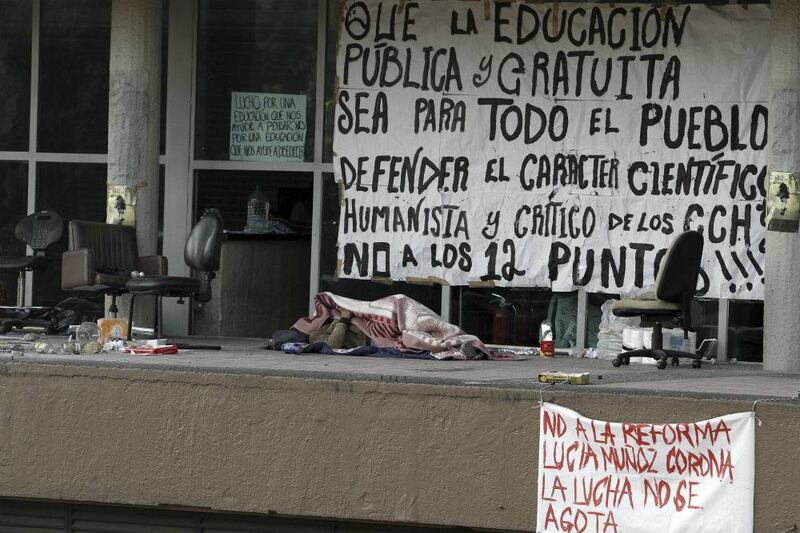 LUCHO POR UNA
EDUCACIÓN QUE NOS
AYUDE A PENSAR, NO
POR UNA EDUCACIÓN
QUE NOS AYUDE A OBEDECER.
QUE LA EDUCACIÓN
PÚBLICA Y GRATUITA
SEA PARA TODO EL PUEBLO
DEFENDER EL CARACTER CIENTÍFICO
HUMANISTA Y CRÍTICO DE LOS CCH?
NO A LOS 12 PUNTOS!!!
NO A LA REFORMA
LUCIA MUÑOZ CORONA
LA LUCHA NO SE
AGOTA.